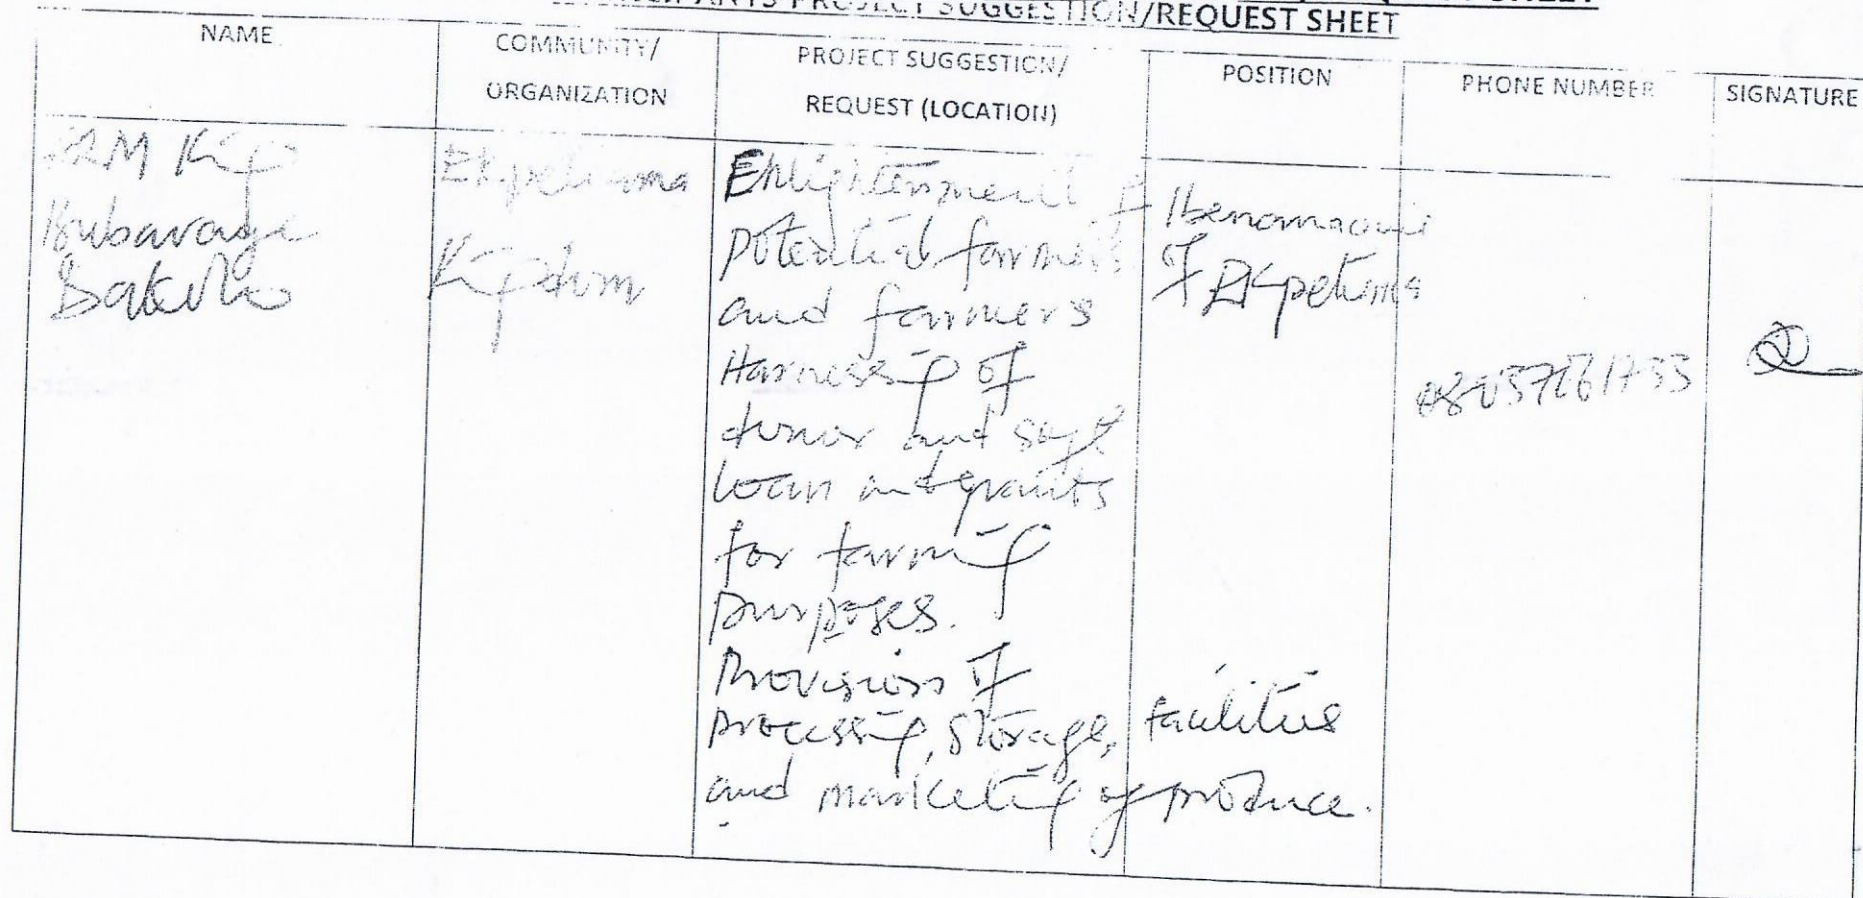 PANTS PROJECT SUGGESTION/REQUEST SHEET
NAME
COMMUNITY/
ORGANIZATION
PROJECT SUGGESTION/
REQUEST (LOCATION)
POSITION
PHONE NUMBER
SIGNATURE
HRM King
Bubaraye
Dakolo
Ekpetiama
Kingdom
Enlightenment of
potential farmers
and farmers
Harnessing of
donor and soft
loan and grants
for farming
purposes.
Provision of
processing, storage, facilities
and marketing of produce.
Ibenanaowei
of Ekpetiama